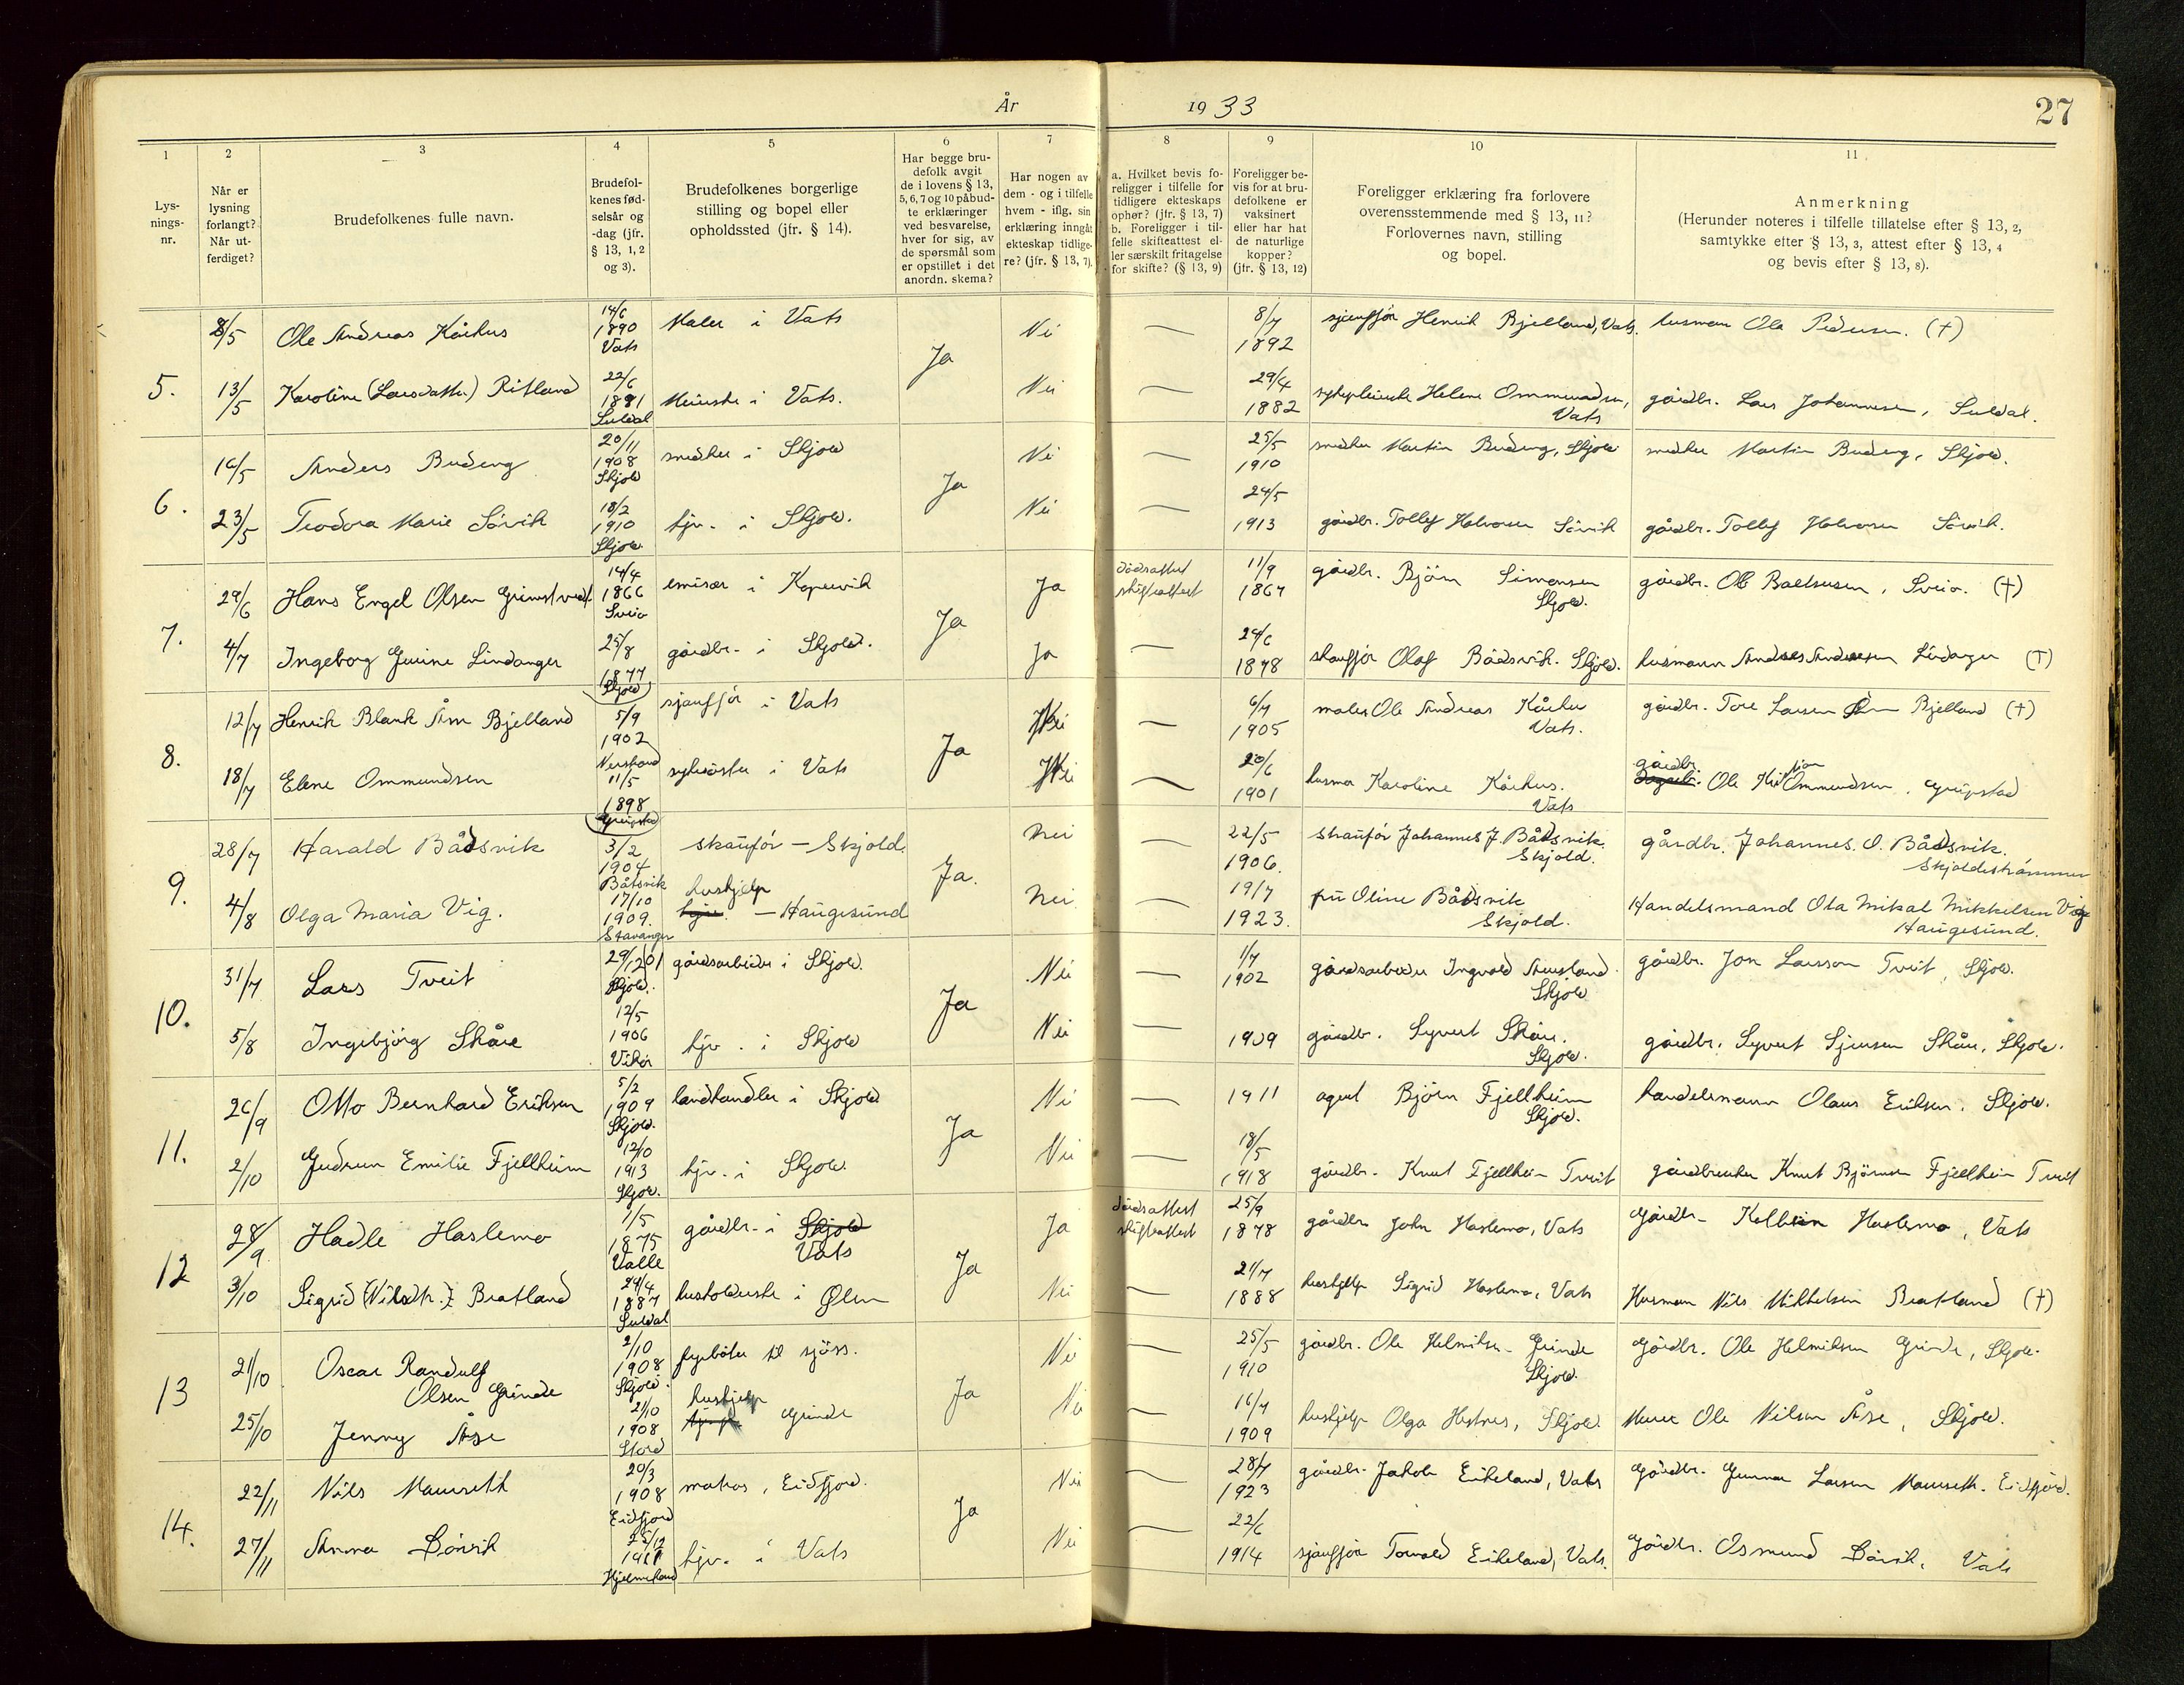 År 1933
27
1
Lys-
nings-
nr.
2
Når er
lysning
forlangt?
Når ut-
ferdiget?
3
Brudefolkenes fulle navn.
4
Brudefol-
kenes fød-
selsår og
-dag (jfr.
§ 13, 1, 2
og 3).
5
Brudefolkenes borgerlige
stilling og bopel eller
opholdssted (jfr. § 14).
6
Har begge bru-
defolk avgit
de i lovens § 13,
5, 6, 7 og 10 påbud-
te erklæringer
ved besvarelse,
hver for sig, av
de spørsmål som
er opstillet i det
anordn. skema?
7
Har nogen av
dem - og i tilfelle
hvem - iflg. sin
erklæring inngåt
ekteskap tidlige-
re? (jfr. § 13, 7).
8
a. Hvilket bevis fo-
religger i tilfelle for
tidligere ekteskaps
ophør? (jfr. § 13, 7)
b. Foreligger i til-
felle skifteattest el-
ler særskilt fritagelse
for skifte? (§ 13, 9)
9
Foreligger be-
vis for at bru-
defolkene er
vaksinert
eller har hat
de naturlige
kopper?
(jfr. § 13, 12)
10
Foreligger erklæring fra forlovere
overensstemmende med § 13, 11?
Forlovernes navn, stilling
og bopel.
11
Anmerkning
(Herunder noteres i tilfelle tillatelse efter § 13, 2,
samtykke efter § 13, 3, attest efter § 13, 4
og bevis efter § 13, 8).
5.
8/5 Ole Andreas Kårhus 14/6 1890 Vats Maler i Vats Ja Nei — 8/7 1892 sjauffør Henrik Bjelland, Vats. husman Ole Pedersen. (†)
13/5 Karoline (Larsdatter) Ritland 22/6 1881 Suldal Meierske i Vats. Nei — 29/4 1882 sykepleierske Helene Ommundsen, Vats gårdbr. Lars Johannesen, Suldal.
6.
16/5 Anders Budeng 20/11 1908 Skjold snedker i Skjold Ja Nei — 25/5 1910 snedker Martin Budeng, Skjold snedker Martin Budeng, Skjold.
23/5 Teodora Marie Sörvik 18/2 1910 Skjold. hjv. i Skjold. Nei — 24/5 1913 gårdbr. Tollef Halvorsen Sörvik gårdbr. Tollef Halvorsen Sörvik.
7.
29/6 Hans Engel Olsen Grimstvedt 14/4 1866 Sveio emisær i Kopervik Ja Ja dödsattest skifteattest 11/9 1867 gårdbr. Björn Simonsen Skjold. gårdbr. Ole Baltsersen, Sveio. (†)
4/7 Ingeborg Gurine Lindanger 25/8 1877 Skjold gårdbr. i Skjold. Ja — 24/6 1878 skauffør Olaf Bådsvik. Skjold. husmann Andreas Andersen Lindanger (†)
8.
12/7 Henrik Blank Åm Bjelland 5/9 1902 Nerstrand sjauffør i Vats Ja Nei — 6/7 1905 maler Ole Andreas Kårhus Vats. gårdbr. Tore Larsen Åm Bjelland (†)
18/7 Elene Ommundsen 11/5 1898 Grimstad sykesöster i Vats Nei — 20/6 1901 husmor Karoline Kårhus. Vats gårdbr. Ole Kristian Ommundsen, Grimstad
9.
28/7 Harald Bådsvik 3/2 1904 Båtsvik skauför — Skjold. Ja. Nei — 22/5 1906. skauför Johannes J. Bådsvik. Skjold. gårdbr. Johannes O. Bådsvik. Skjoldestrømmen
4/8 Olga Maria Vig. 17/10 1909. Stavanger hushjelp — Haugesund Nei — 19/7 1923. frü Oline Bådsvik Skjold. Handelsmand Ola Mikal Mikkelsen Vig Haugesund.
10.
31/7 Lars Tveit 29/12 01 Skjold. gårdsarbeider i Skjold. Ja Nei — 1/7 1902 gårdsarbeider Ingvald Aursland. Skjold gårdbr. Jon Larsson Tveit, Skjold.
5/8 Ingebjörg Skåre 12/5 1906 Vikør hjv. i Skjold Nei — 1909 gårdbr. Syvert Skåre. Skjold. gårdbr. Syvert Sjursen Skåre, Skjold.
11.
26/9 Otto Bernhard Eriksen 5/2 1909 Skjold. landhandler i Skjold Ja Nei — 1911 agent Björn Fjellheim Skjold. handelsmann Olaus Eriksen. Skjold.
2/10 Gudrun Emilie Fjellheim 12/10 1913 Skjold. hjv. i Skjold. Nei — 18/5 1918 gårdbr. Knut Fjellheim Tveit gårdbruker Knut Björnsen Fjellheim Tveit
12
28/9 Hadle Haslemo 1/5 1875 Valle gårdbr. i Skjold Vats Ja Ja dödsattest skifteattest 25/9 1878 gårdbr. John Haslemo, Vats Gårdbr. Haslemo, Vats
3/10 Sigrid (Nilsdtr.) Bratland 24/4 1887 Suldal husholderske i Ølen Nei — 21/7 1888 hushjelp Sigrid Haslemo, Vats Husman Nils Mikkelsen Bratland (†)
13
21/10 Oscar Randulf Olsen Grinde 2/10 1908 Skjold. fyrböter til sjöss. Ja Nei — 25/5 1910 gårdbr. Ole Helmiksen Grinde Skjold. Gårdbr. Ole Helmiksen Grinde, Skjold.
25/10 Jenny Åse 21/10 1908 Stord hushjelp Grinde Nei — 16/7 1909 hushjelp Olga Hestnes, Skjold. Murer Ole Nilsen Åse, Skjold.
14.
22/11 Nils Maurseth 20/3 1908 Eidfjord matros, Eidfjord. Ja Nei — 28/7 1923 gårdbr. Jakob Eikeland, Vats Gårdbr. Gunnar Larsen Maurseth. Eidfjord.
27/11 Anna Börvik 25/12 1911 Hjelmeland hjv. i Vats Nei — 22/6 1914 sjauffør Torvald Eikeland, Vats. Gårdbr. Osmund Börvik, Vats